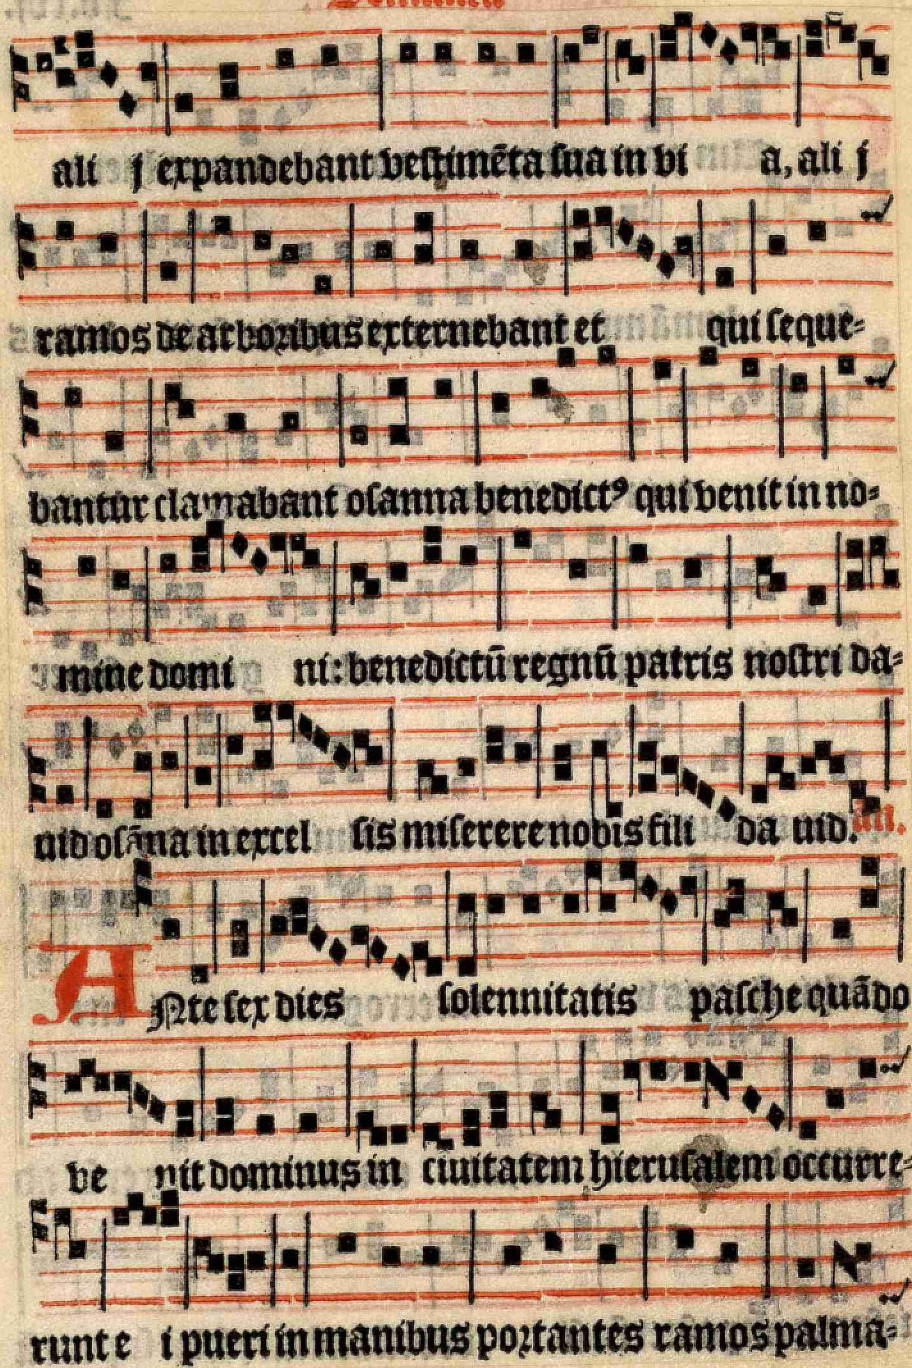 ali j expandebant vestimēta sua in vi a, ali j
ramos de arboribus externebant et qui seque-
bantur clamabant osanna benedictꝰ qui venit in no-
mine domi ni: benedictū regnū patris nostri da-
uid osāna in excel sis miserere nobis fili da uid. an.
ANte sex dies solennitatis pasche quādo
ve nit dominus in ciuitatem hierusalem occurre-
runt e i pueri in manibus portantes ramos palma-